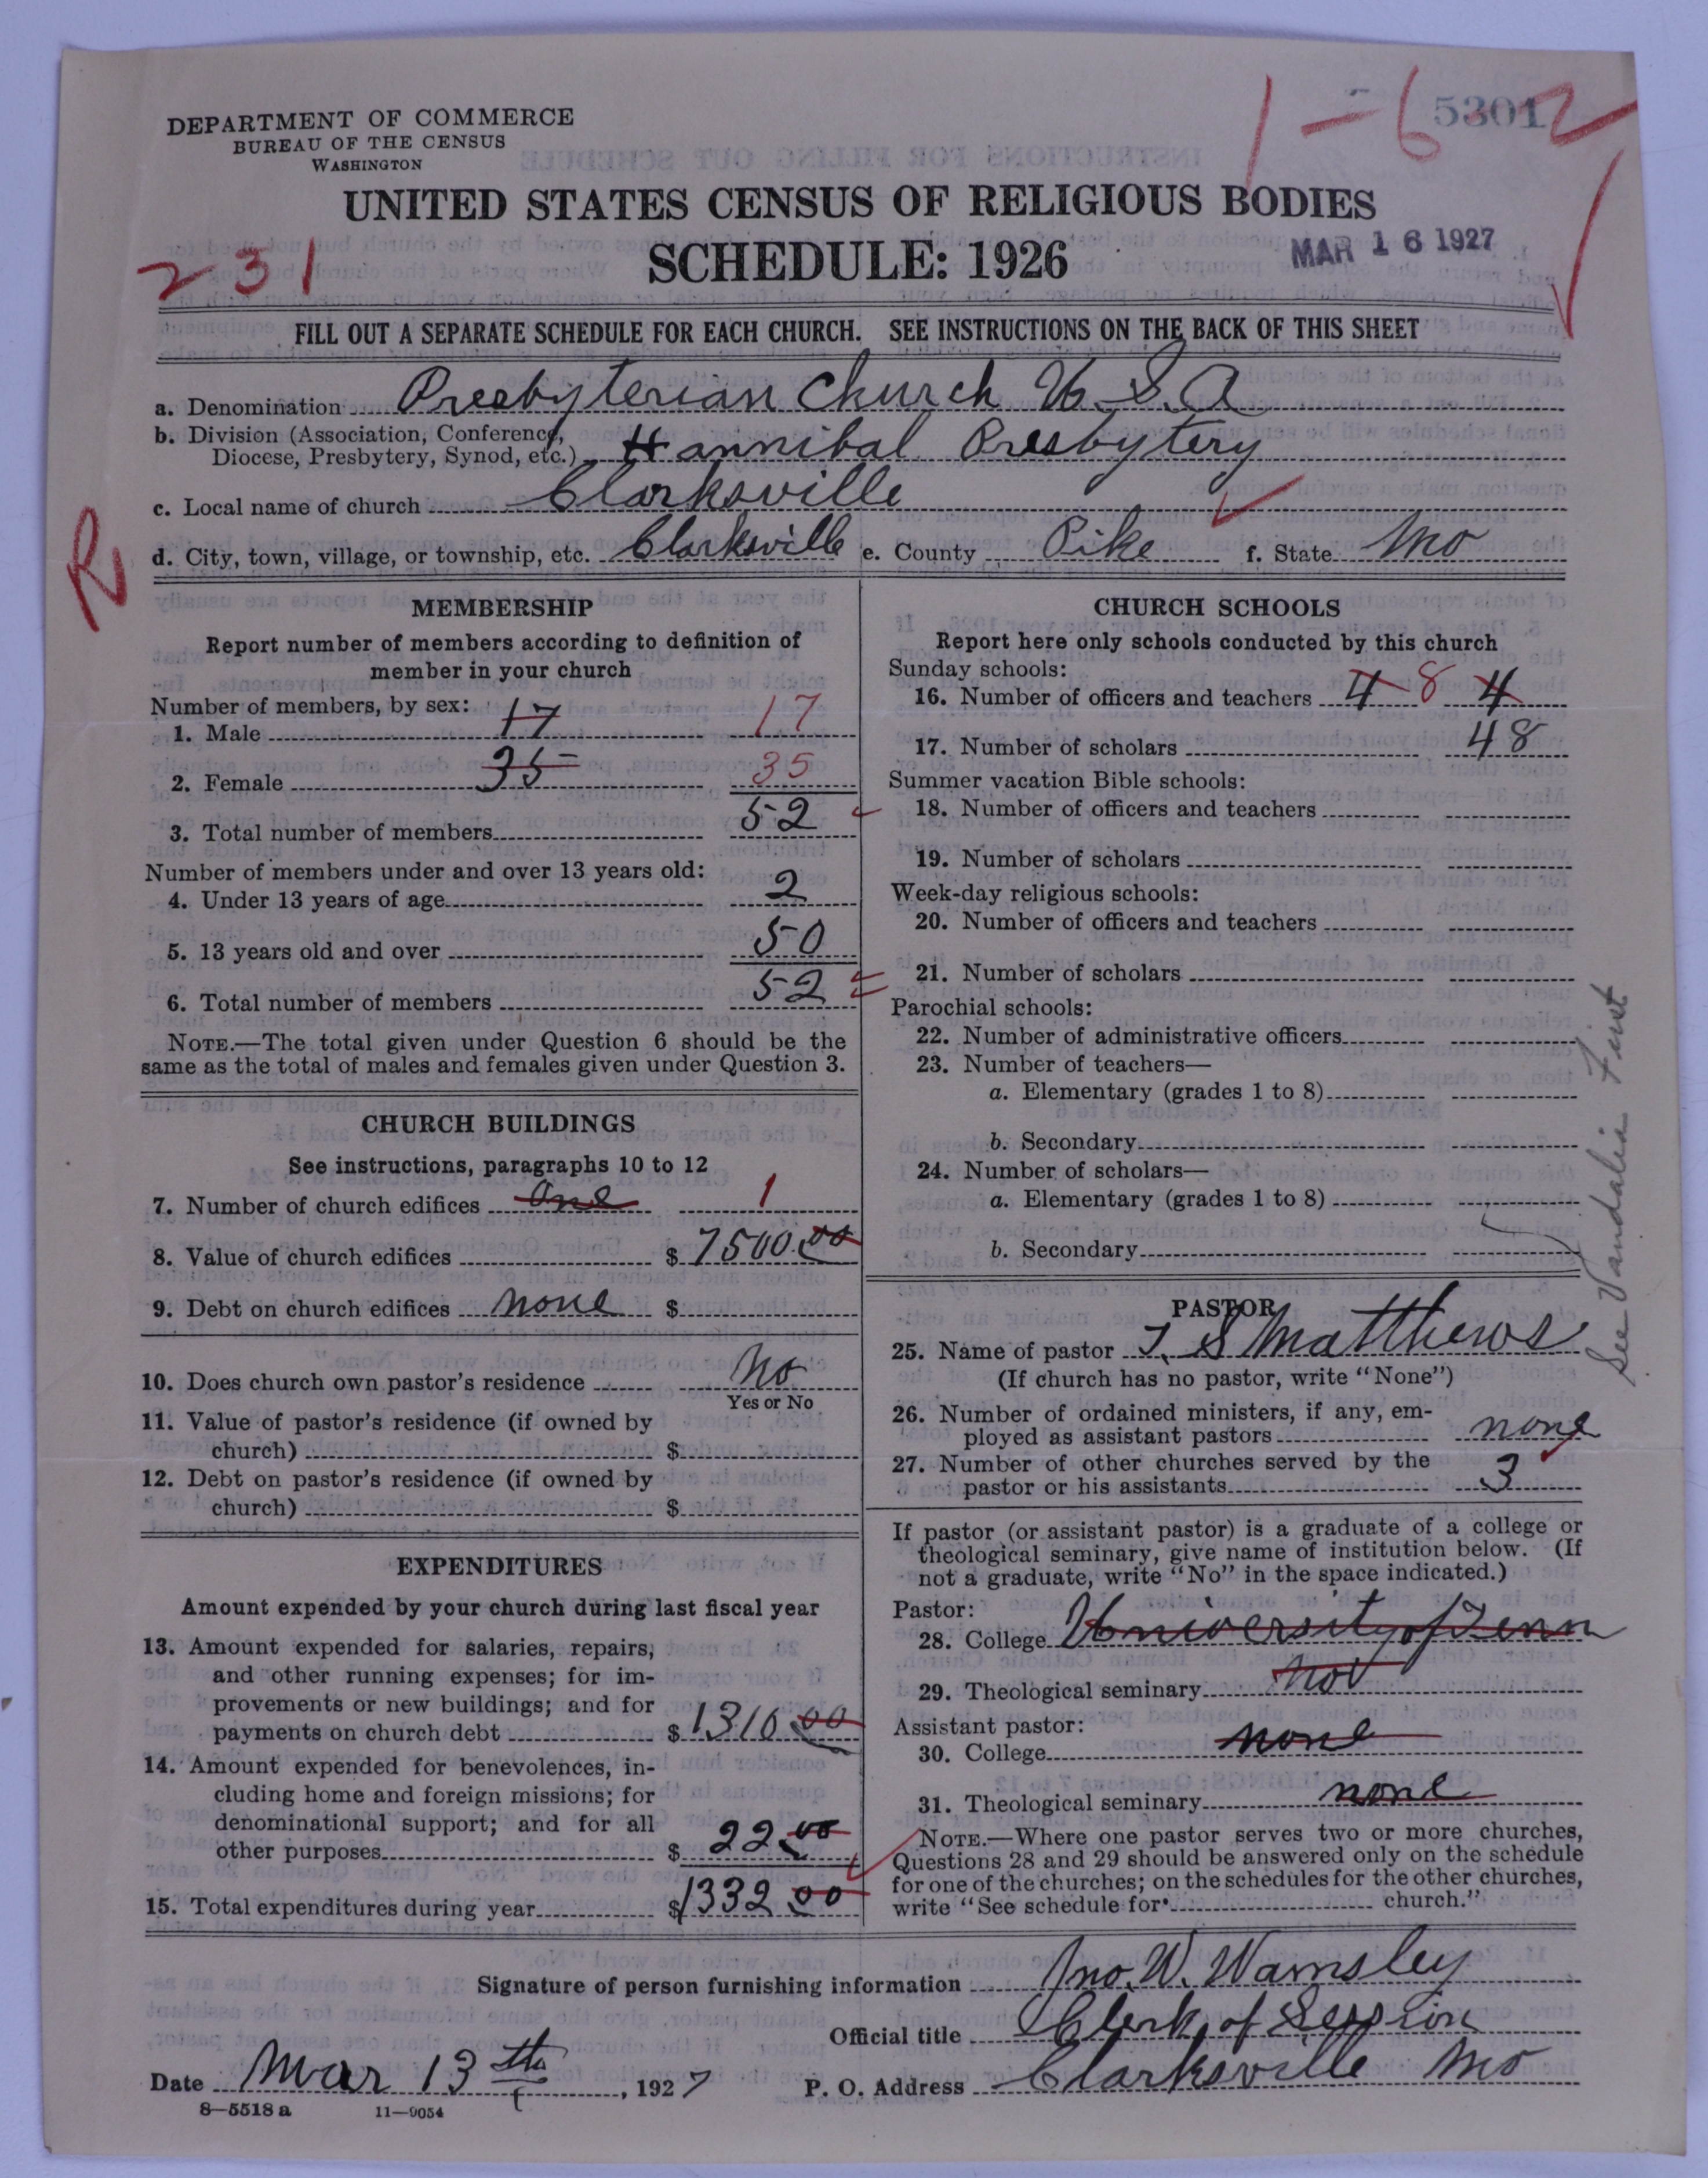 1-6-2
5301
DEPARTMENT OF COMMERCE
BUREAU OF THE CENSUS
WASHINGTON
UNITED STATES CENSUS OF RELIGIOUS BODIES
SCHEDULE: 1926
MAR 16 1927
231
FILL OUT A SEPARATE SCHEDULE FOR EACH CHURCH. SEE INSTRUCTIONS ON THE BACK OF THIS SHEET
a. Denomination Presbyterian Church U.S.A
b. Division (Association, Conference,
Diocese, Presbytery, Synod, etc.) Hannibal Presbytery
c. Local name of church Clarksville
d. City, town, village, or township, etc. Clarksville e. County Pike f. State Mo
R
MEMBERSHIP
Report number of members according to definition of
member in your church
Number of members, by sex:
1. Male 17 17
2. Female 35 35
3. Total number of members 52
Number of members under and over 13 years old:
4. Under 13 years of age 2
5. 13 years old and over 50
6. Total number of members 52
NOTE.—The total given under Question 6 should be the
same as the total of males and females given under Question 3.
CHURCH BUILDINGS
See instructions, paragraphs 10 to 12
7. Number of church edifices one 1
8. Value of church edifices $7500.00
9. Debt on church edifices none $
10. Does church own pastor's residence No
Yes or No
11. Value of pastor's residence (if owned by
church) $
12. Debt on pastor's residence (if owned by
church) $
EXPENDITURES
Amount expended by your church during last fiscal year
13. Amount expended for salaries, repairs,
and other running expenses; for im-
provements or new buildings; and for
payments on church debt $1310.00
14. Amount expended for benevolences, in-
cluding home and foreign missions; for
denominational support; and for all
other purposes $22.00
15. Total expenditures during year $1332.00
CHURCH SCHOOLS
Report here only schools conducted by this church
Sunday schools:
16. Number of officers and teachers 4 8 4
17. Number of scholars 48
Summer vacation Bible schools:
18. Number of officers and teachers
19. Number of scholars
Week-day religious schools:
20. Number of officers and teachers
21. Number of scholars
Parochial schools:
22. Number of administrative officers
23. Number of teachers—
a. Elementary (grades 1 to 8)
b. Secondary
24. Number of scholars—
a. Elementary (grades 1 to 8)
b. Secondary
See Vandalia First
PASTOR
25. Name of pastor T. S Matthews
(If church has no pastor, write "None")
26. Number of ordained ministers, if any, em-
ployed as assistant pastors none
27. Number of other churches served by the
pastor or his assistants 3
If pastor (or assistant pastor) is a graduate of a college or
theological seminary, give name of institution below. (If
not a graduate, write "No" in the space indicated.)
Pastor:
28. College University of Tenn
29. Theological seminary not
Assistant pastor:
30. College none
31. Theological seminary none
NOTE.—Where one pastor serves two or more churches,
Questions 28 and 29 should be answered only on the schedule
for one of the churches; on the schedules for the other churches,
write "See schedule for church."
Signature of person furnishing information Jno. W. Wamsley
Official title Clerk of Session
Date Mar 13th, 1927 P. O. Address Clarksville Mo
8—5518 a 11—9054